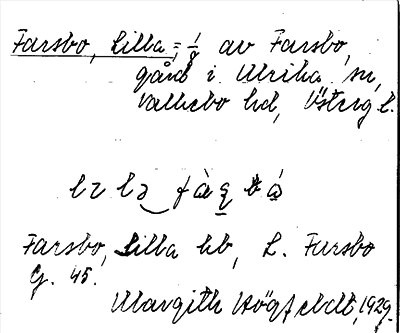 Farsbo, Lilla, 1/g av Farsbo,
gård i Ulrika sn,
Valkebo hd, Östergl.
Farsbo, Lilla hb, L. Farsbo
G. 45.
Margith Högfeldt, 1929.